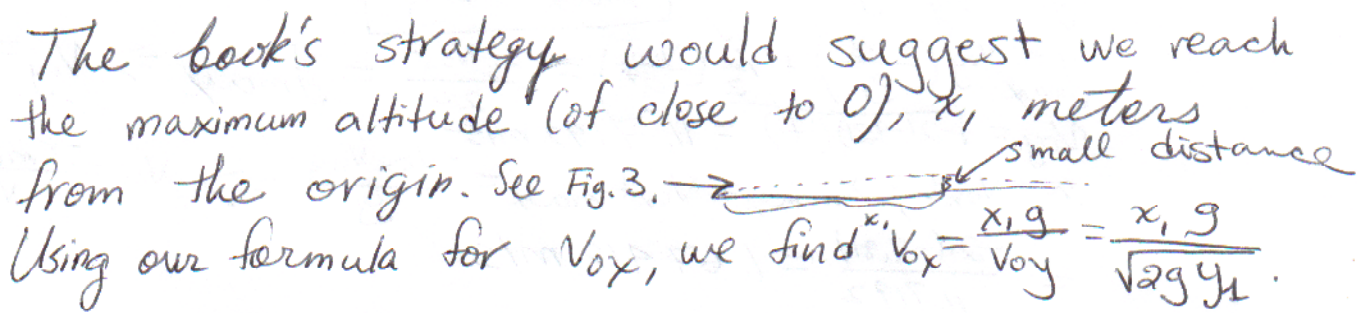 The book's strategy would suggest we reach
the maximum altitude (of close to 0), x₁ meters
small distance
from the origin. See Fig. 3. →
x₁
Using our formula for V₀ₓ, we find V₀ₓ = x₁g / V₀y = x₁g / √2gy₁ .